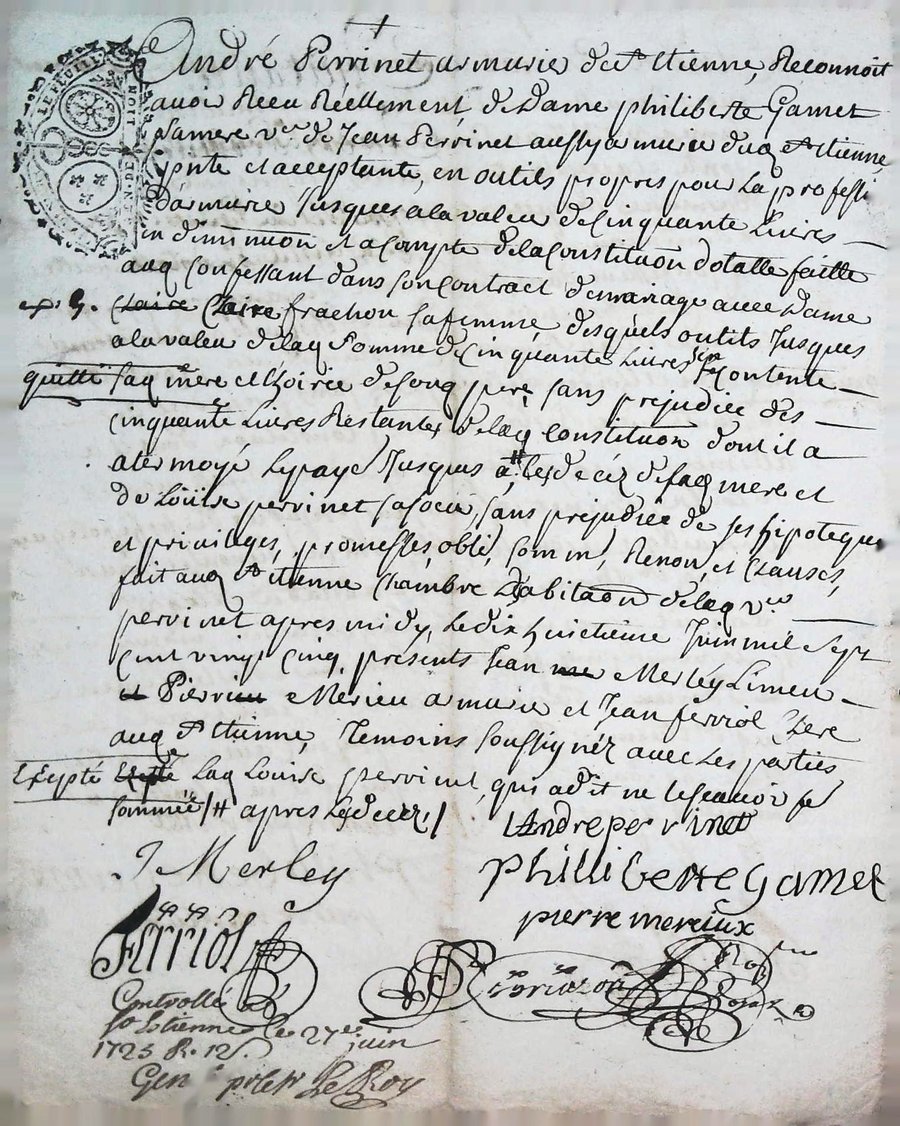 LE FEUILLE
DE LION
André Perrinet armurier de St Etienne, Reconnoit
avoir Receu Réellement, de Dame philiberte Gamet
sa mere ve de Jean Perrinet aussy armurier dudq St Etienne
pnte et acceptante, en outils propres pour la professi
d'armurier Jusques a la valeur de Cinquante Livres
en diminuon et a Compte de la Constituon dotalle faitte
audq Confessant dans son contract de mariage avec Dame
Claire Claire frachon sa femme desquels outils Jusques
a la valeur de laq somme de Cinquante Livres contente
quitte saq mere et hoirie de sondq pere, sans prejudice des
cinquante Livres Restantes de laq constituon dont il a
atermoyé Le paye Jusques a les decéz de saq mere et
de Loüise perrinet sa soeur, sans prejudice de ses hipoteques
et privilages, promesses obli, som m, Renon, et Clauses,
fait audq St étienne Chambre D'abitaon de laq ve
perrinet apres midy, Le dix huictieme Juin mil Sept
Cent vingt cinq, présents Jean Merley Limeur
et Pierre Merieu armurier et Jean ferriol Clerc
audq St Etienne, Temoins soussignéz avec Les parties
Exepté Laq Louise perrinet, qui a dit ne le scavoir
sommée /# apres Le decez /
L'Andre perrinet
J Merley
Phillibertte Gamet
pierre mereiux
Ferriol
Controllé a
St Etienne le 27e juin
1725 R. 12 s.
Le Roy